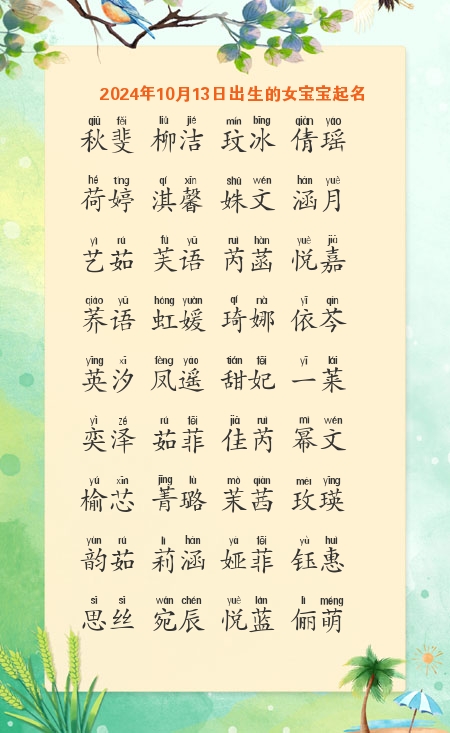 2024年10月13日出生的女宝宝起名
qiū fěi liǔ jié mín bīng qiàn yáo
秋斐 柳洁 玟冰 倩瑶
hé tíng qí xīn shū wén hán yuè
荷婷 淇馨 姝文 涵月
yì rú fú yǔ ruì hàn yuè jiā
艺茹 芙语 芮菡 悦嘉
qiáo yǔ hóng yuàn qí nà yī qín
荞语 虹媛 琦娜 依芩
yīng xī fèng yáo tián fēi yī lái
英汐 凤遥 甜妃 一莱
yì zé rú fēi jiā ruì mì wén
奕泽 茹菲 佳芮 幂文
yú xīn jīng lù mò qiàn méi yīng
榆芯 菁璐 茉茜 玫瑛
yùn rú lì hán yà fēi yù huì
韵茹 莉涵 娅菲 钰惠
sī sī wǎn chén yuè lán lì méng
思丝 宛辰 悦蓝 俪萌